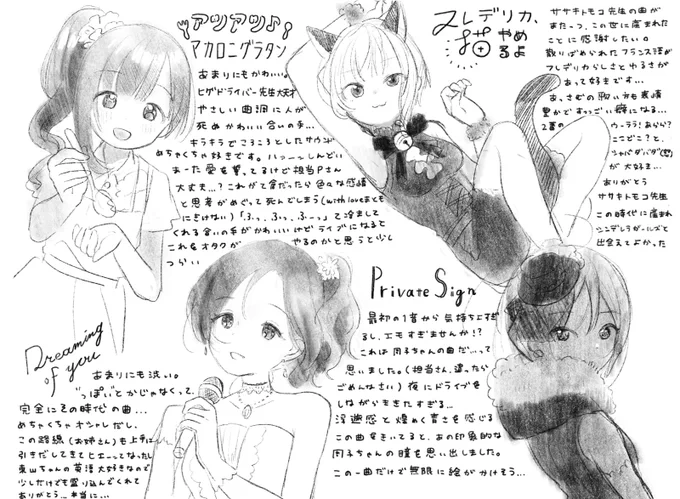 アツアツ♪
マカロニグラタン
あまりにもかわいい。
ヒゲドライバー先生天才
やさしい曲調に人が
死ぬかわいい合いの手…
キラキラでころころとしたサウンド
めちゃくちゃ好きです。ハァ〜〜しんどい
あった愛を誓ってるけど担当Pさん
大丈夫…?これがて
色々な感情
と思考がめぐって死んでしまう(with loveまとも
にきけない)「ふっ、ふっ、ふーっ」て冷まして
くれる合いの手がかわいいけどライブになると
これをオタクが
やるのかと思うと少し
つらい
フレデリカ、
猫
やめ
るよ
ササキトモコ先生の曲が
また一つ、この世に産まれた
ことに感謝したい。
散りばめられたフランス語が
フレデリカらしさとゆるさが
あって好きです…
あさぎの歌い方も表情
豊かですっごい癖になる…
2番の
ウーララ!あらら?
ここどこ?と、
シャバダバダ
が大好き…
ありがとう
ササキトモコ先生
この時代に産まれ
シンデレラガールズと
出会えてよかった
Private Sign
最初の1音から気持ちよすぎ
るし、エモすぎませんか!?
これは周子ちゃんの曲だ…って
思いました。(担当さん、違ったら
ごめんなさい)夜にドライブを
しながらききたすぎる…
浮遊感と煌めく青さを感じる
この曲をきいてると、あの印象的な
周子ちゃんの瞳を思い出しました。
この一曲だけで無限に絵がかけそう…
Dreaming
of you
あまりにも渋い。
"っぽい"とかじゃなくって、
完全にその時代の曲…
めちゃくちゃオシャレだし、
この路線(お姉さん)も上手に
引きだしてきてヒエーってなったし
東山ちゃんの英語大好きなので
少しだけでも盛り込んでくれて
ありがとう…本当に…